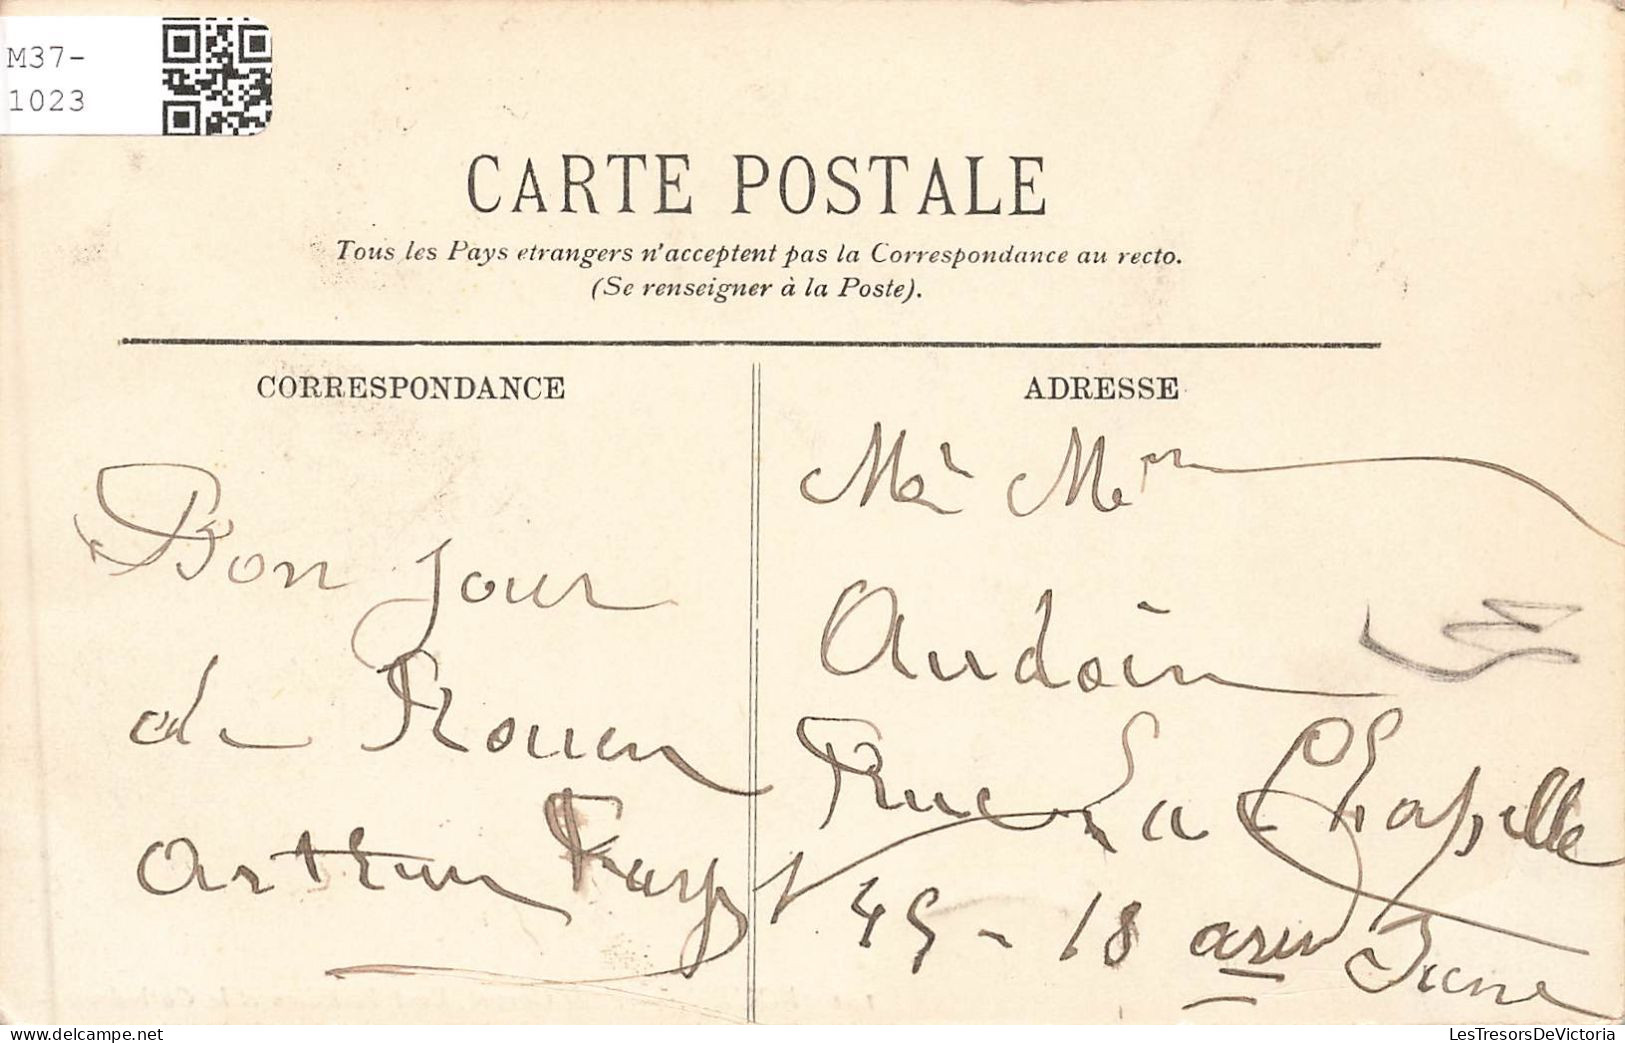 M37-
1023
CARTE POSTALE
Tous les Pays etrangers n'acceptent pas la Correspondance au recto.
(Se renseigner à la Poste).
CORRESPONDANCE
Bon jour
de Rouen
Arthur
ADRESSE
Audoin
Rue La Chapelle
45 - 18 arm
LesTresorsDeVictoria
www.delcampe.net